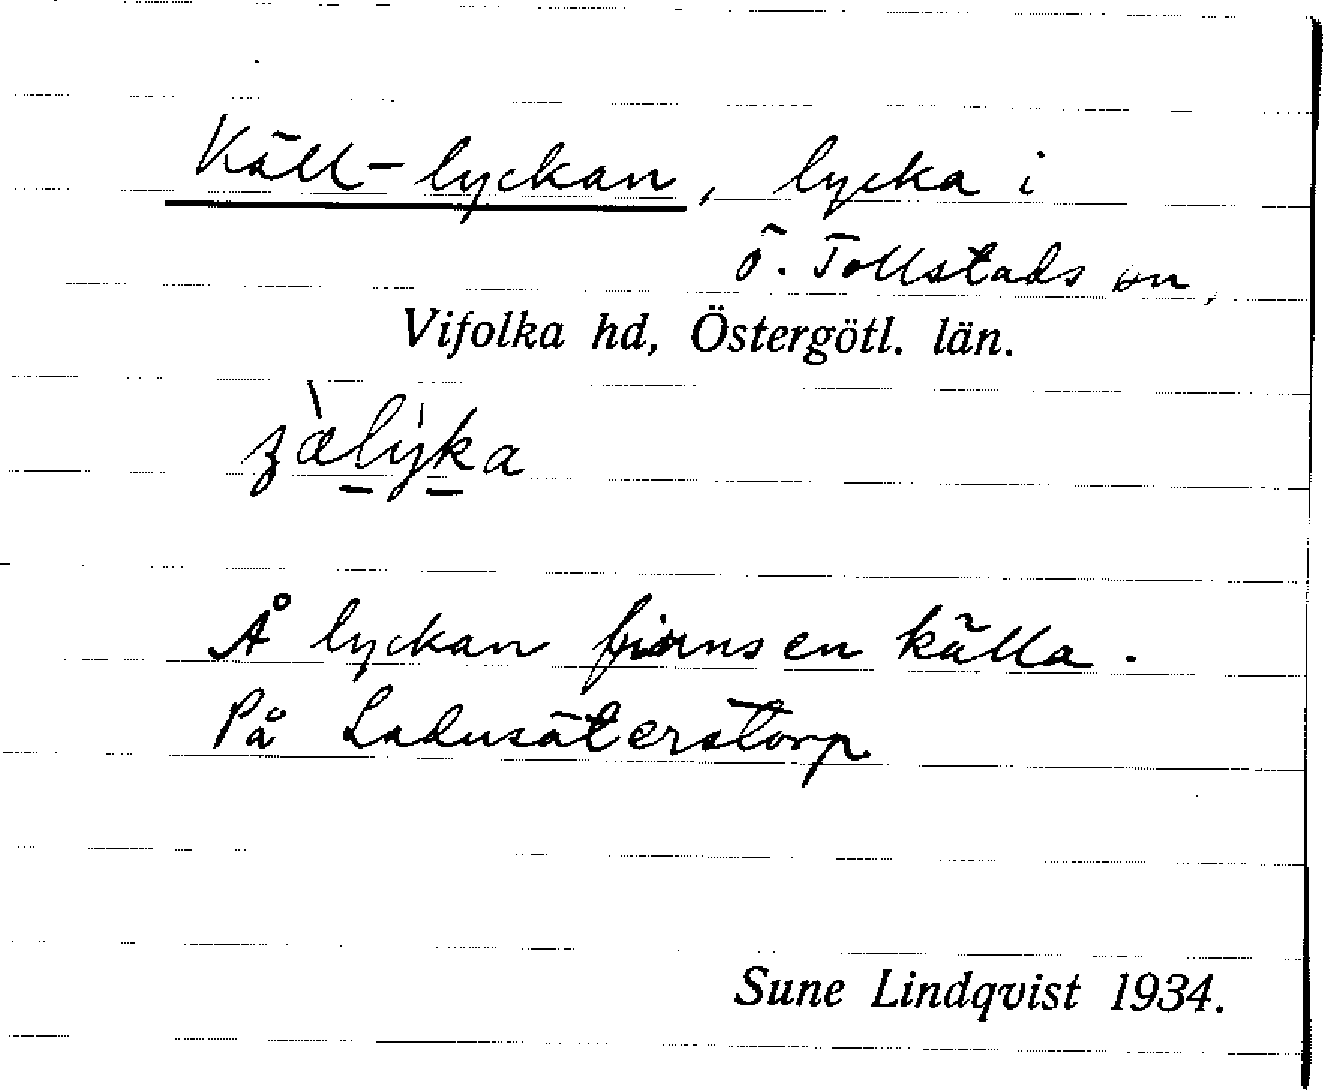 Käll-lyckan, lycka i
Ö. Tollstads sn,
Vifolka hd, Östergötl. län.
Å lyckan finns en källa.
På Ladusäterstorp
Sune Lindqvist 1934.